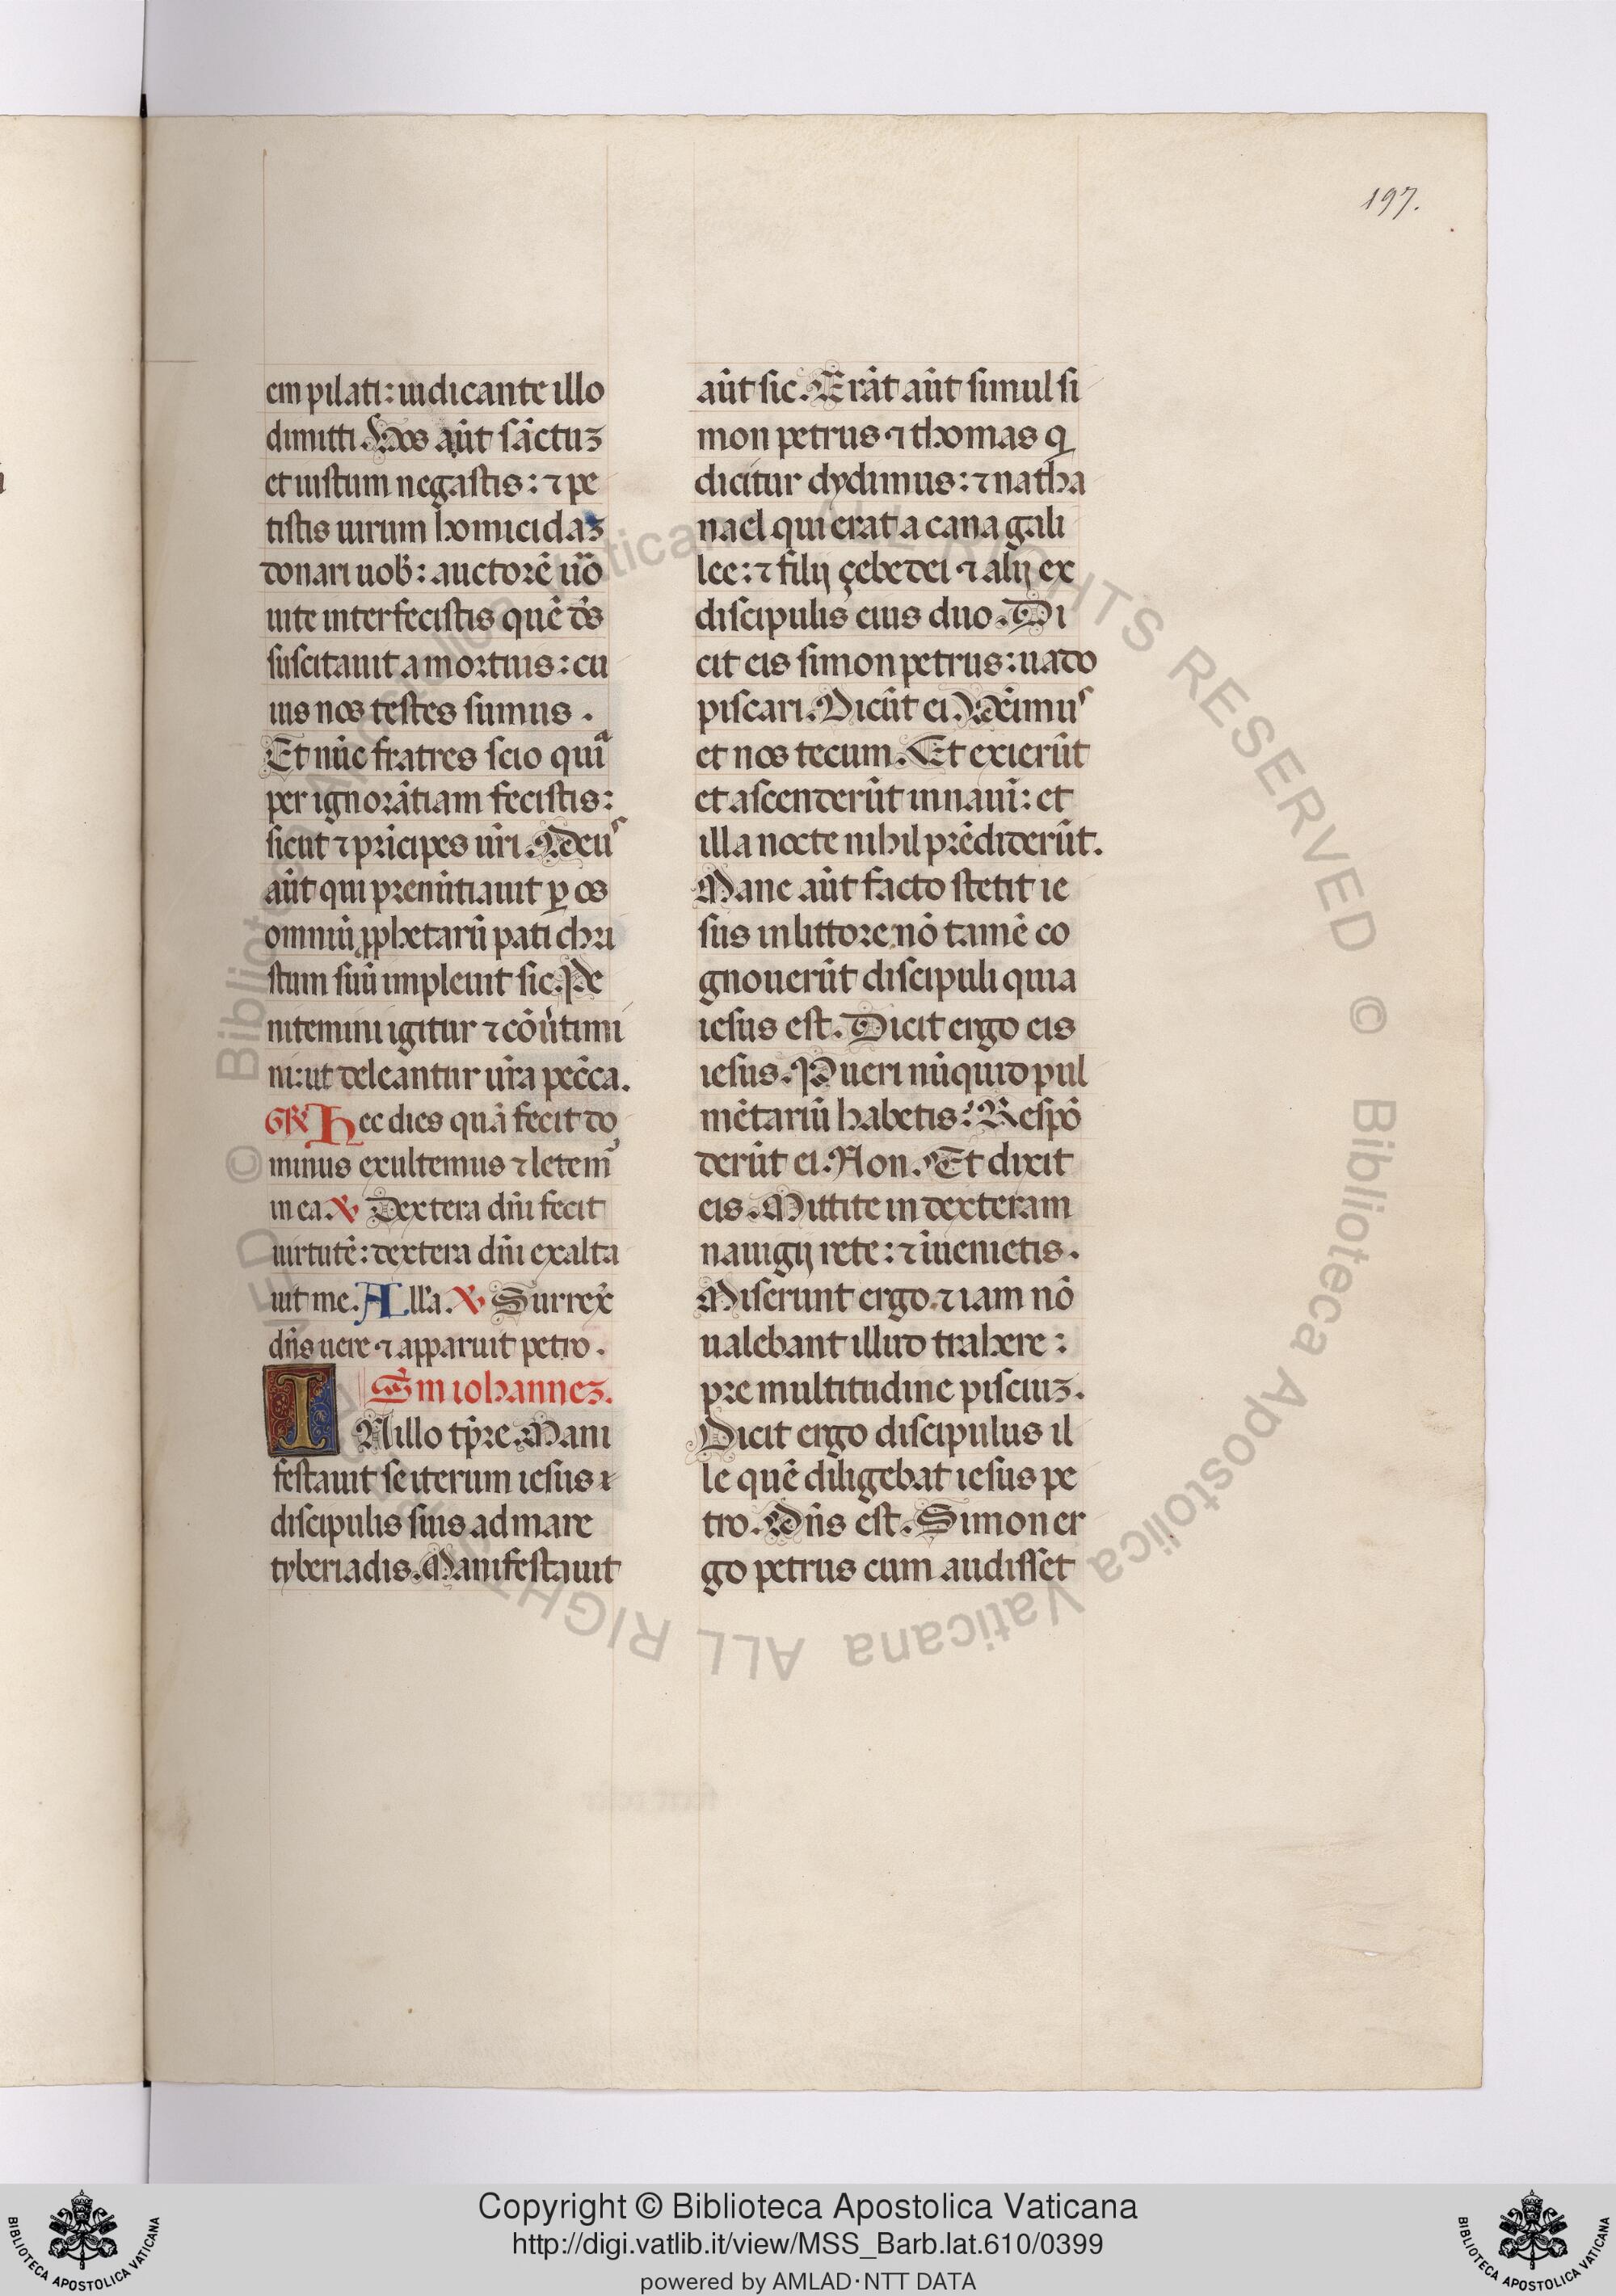 197.
em pilati: iudicante illo
dimitti. Uos aūt sāctuꝫ
et iustum negastis: ⁊ pe
tistis uirum homicidaꝫ
donari uob: auctorē ūo
uite interfecistis quē ds̄
suscitauit a mortuis: cu
ius nos testes sumus.
Et nūc fratres scio quia
per ignorātiam fecistis:
sicut ⁊ prīcipes ur̄i. Deus
aūt qui prenūtiauit ꝑ os
omniū ꝓphetarū pati chri
stum suū impleuit sic. Pe
nitemini igitur ⁊ cōūtimi
ni: ut deleantur ur̄a pecc̄a.
GR̄ Hec dies quā fecit do
minus exultemus ⁊ letem
in ea. ℣ Dextera dn̄i fecit
uirtutē: dextera dn̄i exalta
uit me. All'a. ℣ Surrex̄
dn̄s uere ⁊ apparuit petro.
Sm iohanneꝫ.
IN illo tp̄re. Mani
festauit se iterum iesus ⁊
discipulis suis ad mare
tyberiadis. Manifestauit
aūt sic. Erāt aūt simul si
mon petrus ⁊ thomas q
dicitur dydimus: ⁊ natha
nael qui erat a cana gali
lee: ⁊ filij çebedei ⁊ alij ex
discipulis eius duo. Di
cit eis simon petrus: uado
piscari. Dicūt ei. Ueīmus
et nos tecum. Et exierūt
et ascenderūt in nauī: et
illa nocte nihil prēdiderūt.
Mane aūt facto stetit ie
sus in littore nō tamē co
gnouerūt discipuli quia
iesus est. Dicit ergo eis
iesus. Pueri nūquid pul
mētariū habetis? Respō
derūt ei. Non. Et dixit
eis. Mittite in dexteram
nauigij rete: ⁊ īuenietis.
Miserunt ergo. ⁊ iam nō
ualebant illud trahere:
pre multitudine pisciuꝫ.
Dicit ergo discipulus il
le quē diligebat iesus pe
tro. Dn̄s est. Simon er
go petrus cum audisset
© Biblioteca Apostolica Vaticana ALL RIGHTS RESERVED © Biblioteca Apostolica Vaticana ALL RIGHTS RESERVED
Copyright © Biblioteca Apostolica Vaticana
http://digi.vatlib.it/view/MSS_Barb.lat.610/0399
powered by AMLAD·NTT DATA
BIBLIOTECA APOSTOLICA VATICANA
BIBLIOTECA APOSTOLICA VATICANA